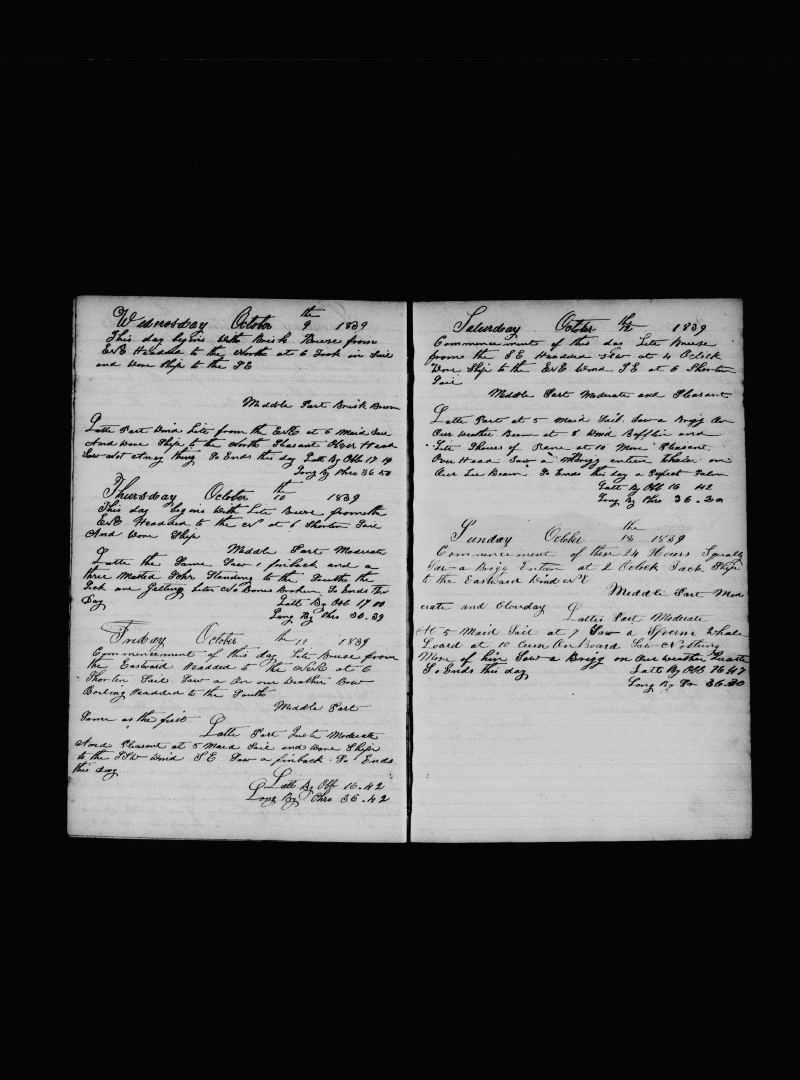 Wednesday October 9 the 1839
This day begins With Brisk Breese from
ENE Headed to the North at 6 Took in Sail
and wore Ship to the SE
Middle Part Brisk
Latte Part Wind Lite from the ENE at 6 Maid Sail
And wore Ship to the North Pleasant Over Head
Saw Not Eney thing So Ends this day Latt By Obb 17 19
Long By Chro 36 50
Thursday October 10 the 1839
This day begins With Lite Breese from the
ENE Headed to the N at 1 Shorten Sail
And Wore Ship
Middle Part Moderate
Latte the Same Saw 1 finback and a
three Masted Sohr Standing to the South the
Bones Broken So Ends the
Day Latt By Obb 17 00
Long By Chro 36.39
Friday October the 11 1839
Commencement of this day Lite Breese from
the Eastward Headed to the NNE at 6
Shorten Sail Saw a on our Weather Bow
Headed to the South
Middle Part
Same as the first Latte Part Moderate
And Pleasant at 5 Maid Sail and wore Ship
to the SSW Wind SE Saw a finback So Ends
this day
Latt By Obb 16.42
Long By Chro 36.42
Saturday October the 12 1839
Commencement of this day Lite Breese
from the SE Headed at 4 Oclock
Wore Ship to the ENE Wind SE at 6 Shorten
Sail
Middle Part Moderate and Pleasant
Latte Part at 5 Maid Sail Saw a Brigg On
Our weather Beam at 8 Wind Bafflin and
Lite Shours of Rane at 10 More Pleasant
Over Head Saw a Brigg on
Our Lee Beam So Ends this day a Perfect Calm
Latt By Obb 16 42
Long By Chro 36.20
Sunday October the 13 1839
Commencement of these 24 Hours Squaly
Saw a Brigg at 2 Oclock Tack Ship
to the Eastward Wind
Middle Part Mod
erate and Clouday Latter Part Moderate
At 5 Maid Sail at 7 Saw a Sperm Whale
at 10 Cum On Board Saw Nothing
More of him Saw a Brigg on Our weather Quarte
So Ends this day Latt By Obb 16 47
Long By Cr 36.30